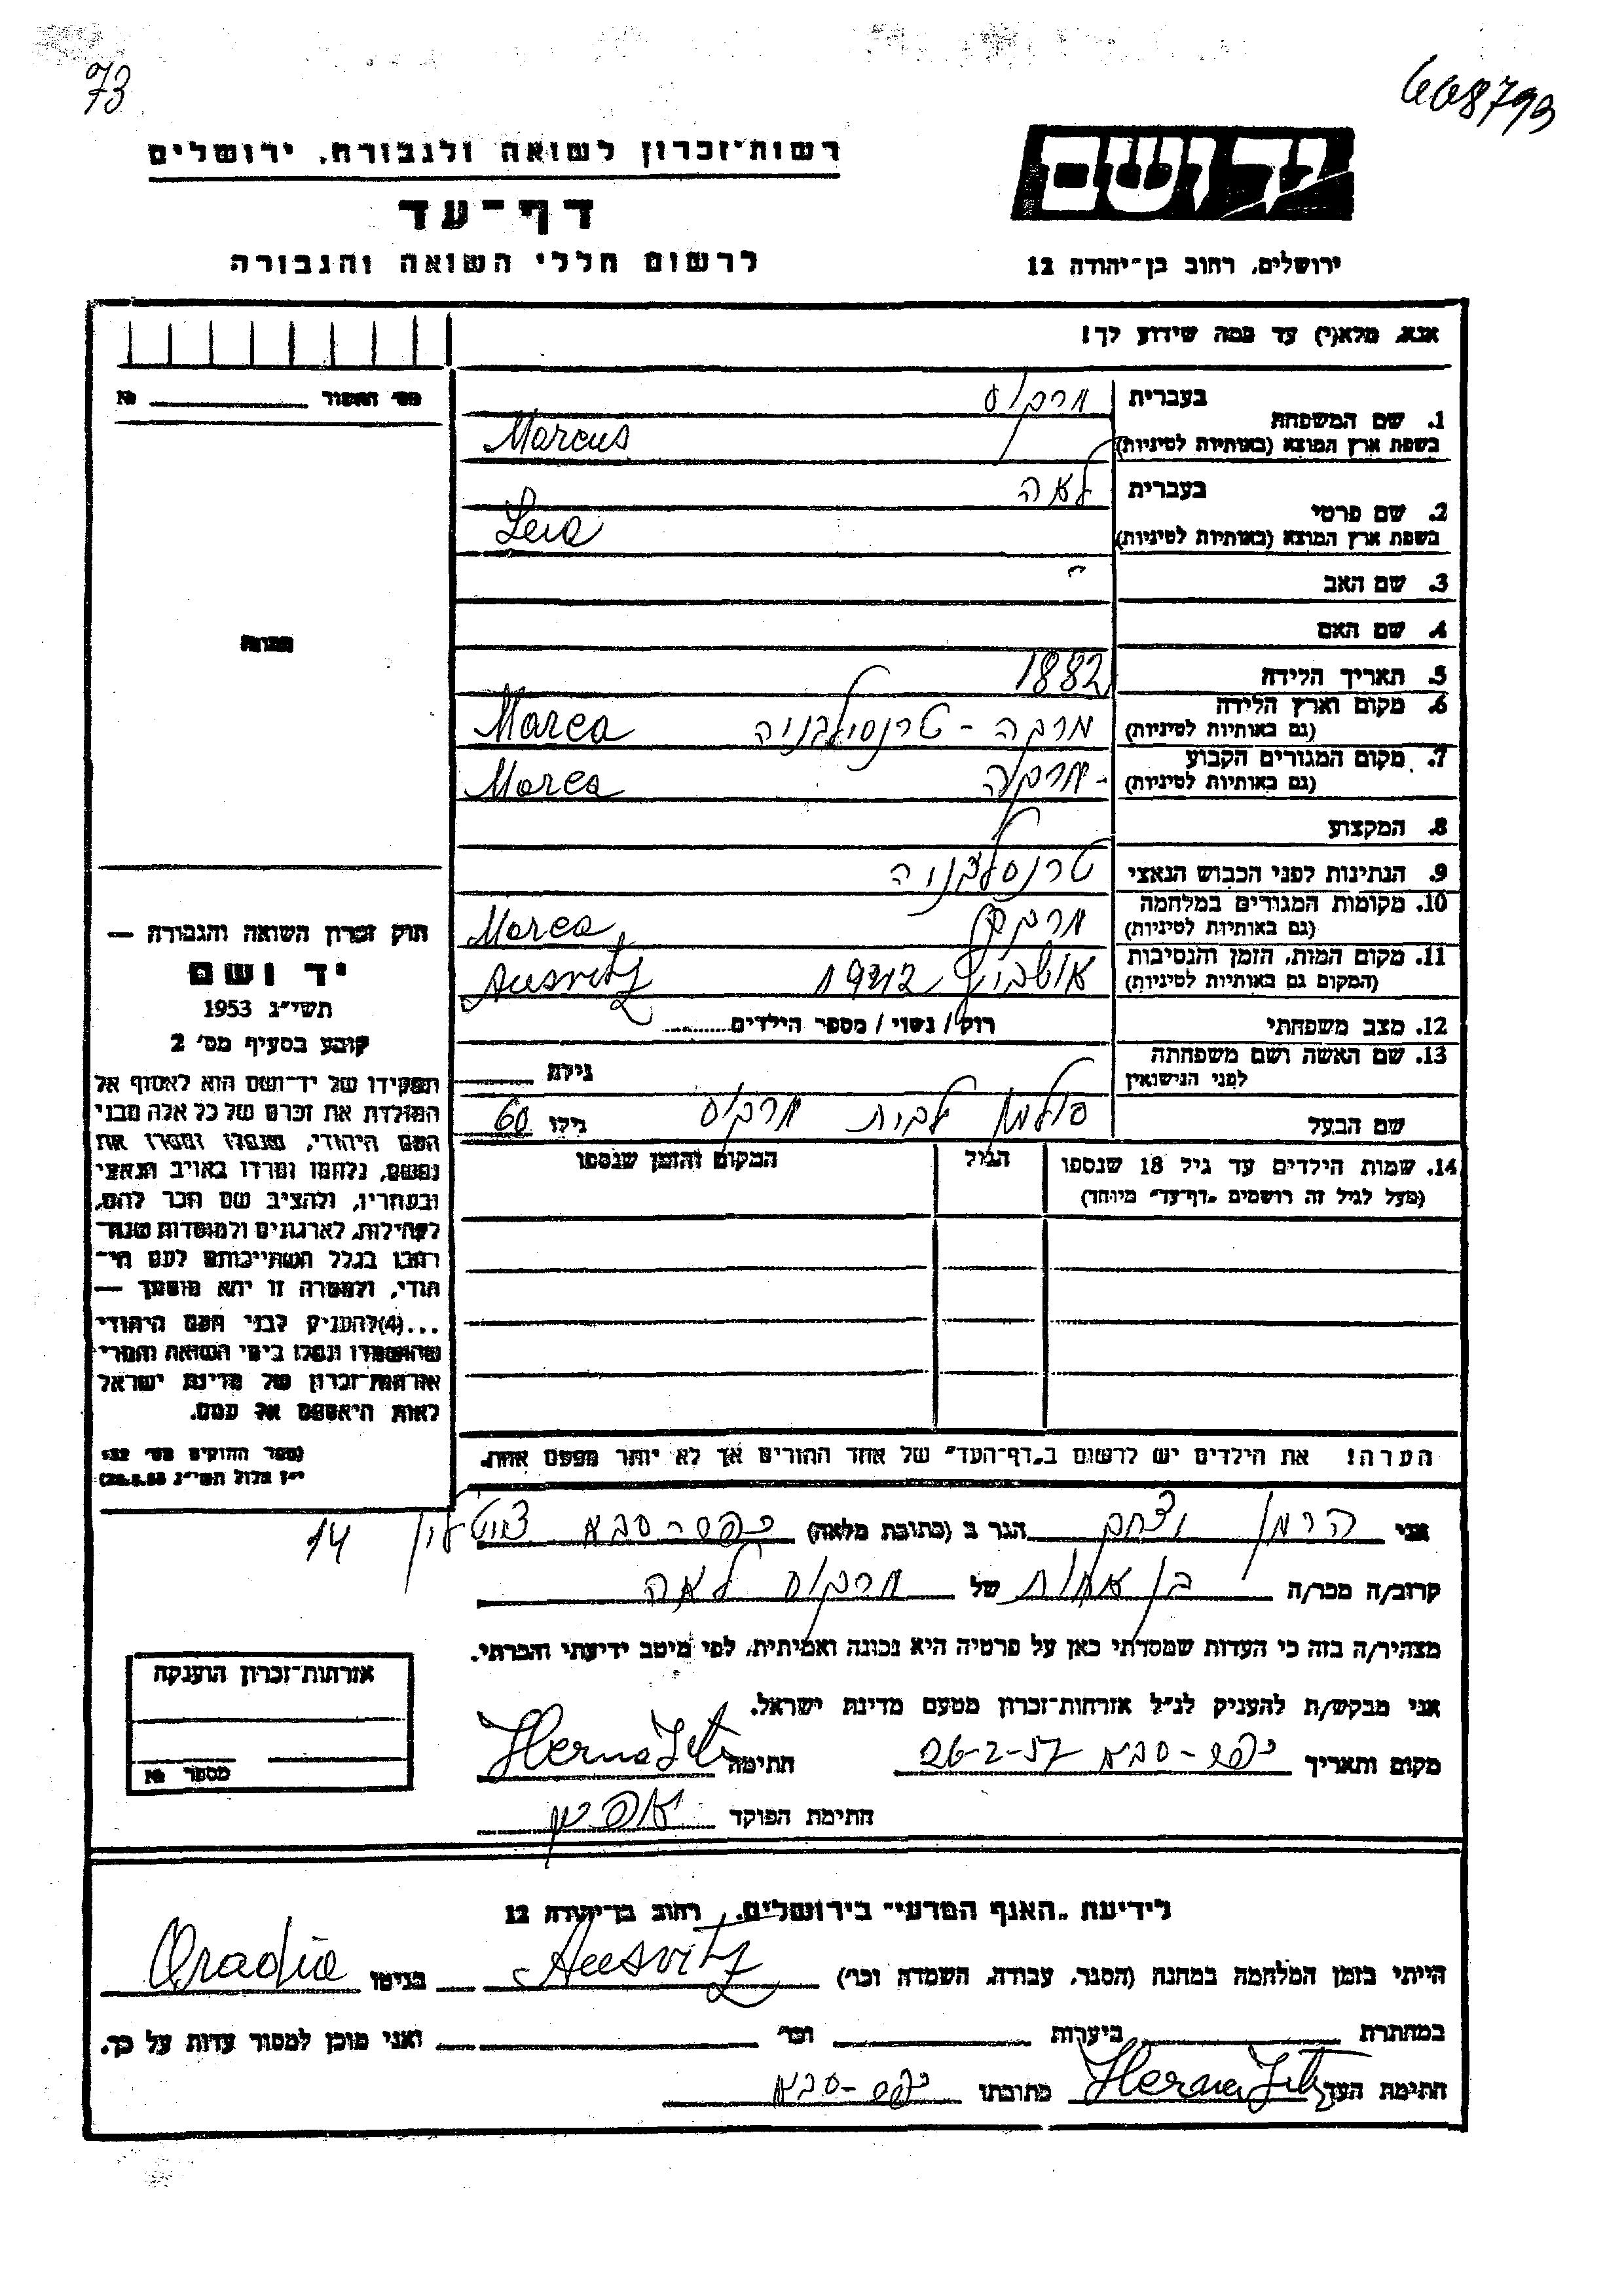 73
608799
רשות־זכרון לשואה ולגבורה, ירושלים
יד ושם
דף־עד
לרשום חללי השואה והגבורה
ירושלים, רחוב בן־יהודה 12
אנא, מלא(י) עד כמה שידוע לך!
מס' התשור ____ №
1. שם המשפחה בעברית מרקוס
בשפת ארץ המוצא (באותיות לטיניות) Marcus
2. שם פרטי בעברית לאה
בשפת ארץ המוצא (באותיות לטיניות) Lea
3. שם האב
4. שם האם
תמונה
5. תאריך הלידה 1882
6. מקום וארץ הלידה (גם באותיות לטיניות) מרקה - טרנסילבניה Marca
7. מקום המגורים הקבוע (גם באותיות לטיניות) מרקה Marca
8. המקצוע
9. הנתינות לפני הכבוש הנאצי טרנסלבניה
10. מקומות המגורים במלחמה (גם באותיות לטיניות) מרקה Marca
11. מקום המות, הזמן והנסיבות (המקום גם באותיות לטיניות) 1942 Ausvitz
12. מצב משפחתי רוק / נשוי / מספר הילדים
13. שם האשה ושם משפחתה לפני הנישואין גילה
שם הבעל לבית מרקוס גילו 60
14. שמות הילדים עד גיל 18 שנספו הגיל המקום והזמן שנספו
(מעל לגיל זה רושמים „דף־עד" מיוחד)
חוק זכרון השואה והגבורה —
יד ושם
תשי״ג 1953
קובע בסעיף מס' 2
תפקידו של יד־ושם הוא לאסוף אל
המולדת את זכרם של כל אלה מבני
העם היהודי, שנפלו ומסרו את
נפשם, נלחמו ומרדו באויב הנאצי
ובעוזריו, ולהציב שם וזכר להם,
לקהילות, לארגונים ולמוסדות שנח־
רבו בגלל השתייכותם לעם הי־
הודי, ולמטרה זו יהא מוסמך —
...(4) להעניק לבני העם היהודי
שהושמדו ונפלו בימי השואה והמרי
אזרחות־זכרון של מדינת ישראל
לאות היאספם אל עמם.
(ספר החוקים מס' 132
י״ז אלול תשי״ג 28.8.53)
הערה! את הילדים יש לרשום ב„דף־העד" של אחד ההורים אך לא יותר מפעם אחת.
אני הרמן יצחק הגר ב (כתובת מלאה) כפר-סבא 14
קרוב/ה מכר/ה בן אחות של מרקוס לאה
מצהיר/ה בזה כי העדות שמסרתי כאן על פרטיה היא נכונה ואמיתית, לפי מיטב ידיעתי והכרתי.
אני מבקש/ת להעניק לנ״ל אזרחות־זכרון מטעם מדינת ישראל.
אזרחות־זכרון הוענקה
מספר №
מקום ותאריך כפר-סבא 26-2-57 חתימה
חתימת הפוקד
לידיעת „האגף המדעי" בירושלים, רחוב בן־יהודה 12
הייתי בזמן המלחמה במחנה (הסגר, עבודה, השמדה וכו') Ausvitz בגיטו Oradia
במחתרת ביערות וכו' ואני מוכן למסור עדות על כך.
חתימת העד כתובתו כפר-סבא